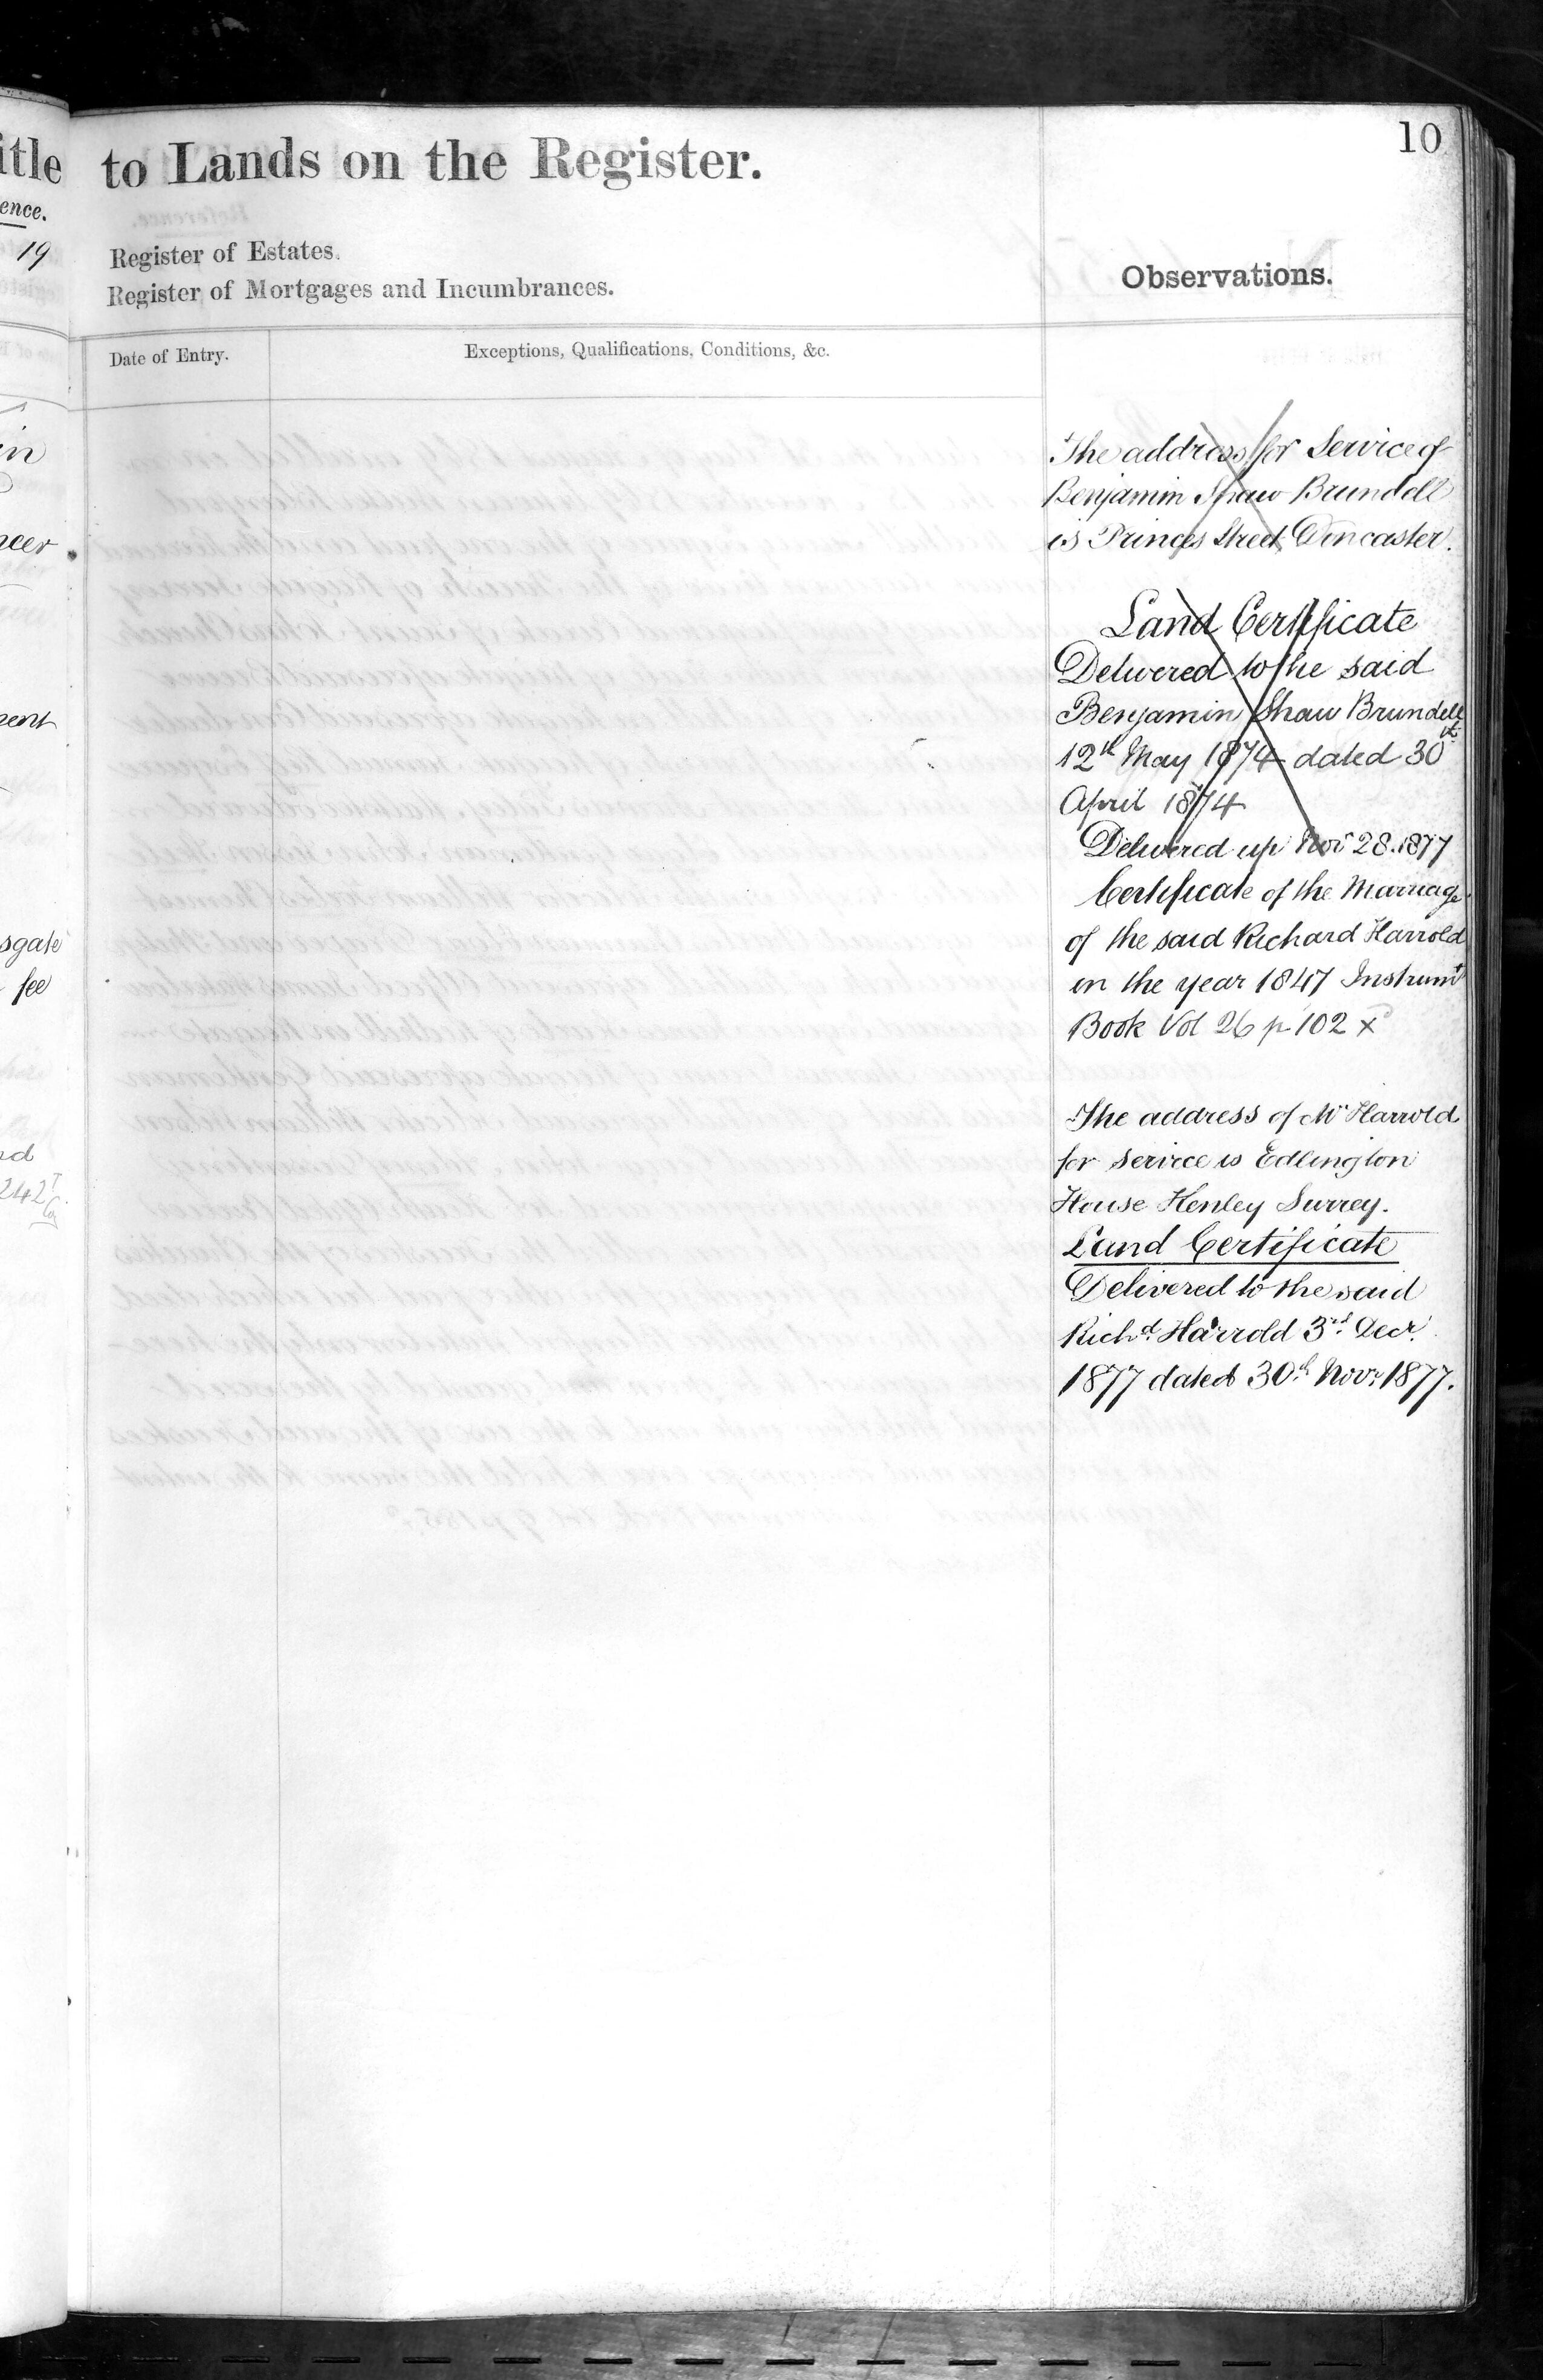 itle to Lands on the Register.
10
ence.
19
Register of Estates.
Register of Mortgages and Incumbrances.
Observations.
Date of Entry.
Exceptions, Qualifications, Conditions, &c.
in
ncer
ent
sgate
fee
242
The address for Service of
Benjamin Shaw Brundell
is Princes Street Doncaster.
Land Certificate
Delivered to the said
Benjamin Shaw Brundell
12th May 1874 dated 30th
April 1874
Delivered up Novr 28. 1877
Certificate of the Marriage
of the said Richard Harrold
in the year 1847 Instrumt
Book Vol 26 p 102 x
The address of Mr Harrold
for service is Edlington
House Kenley Surrey.
Land Certificate
Delivered to the said
Richd. Harrold 3rd. Decr.
1877 dated 30th Novr. 1877.